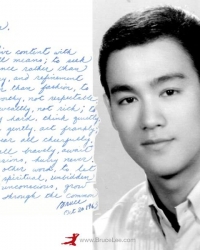 live contents with
means; to seek
rather than
and refinement
than fashion, to
worthy, not respectable
wealthy, not rich; to
hard, think quietly
gently, act frankly
bear all cheerfully
all bravely, await
hurry never.
other words, to let
spiritual, unbidden
unconscious, grow
through the common
Bruce
www.BruceLee.com